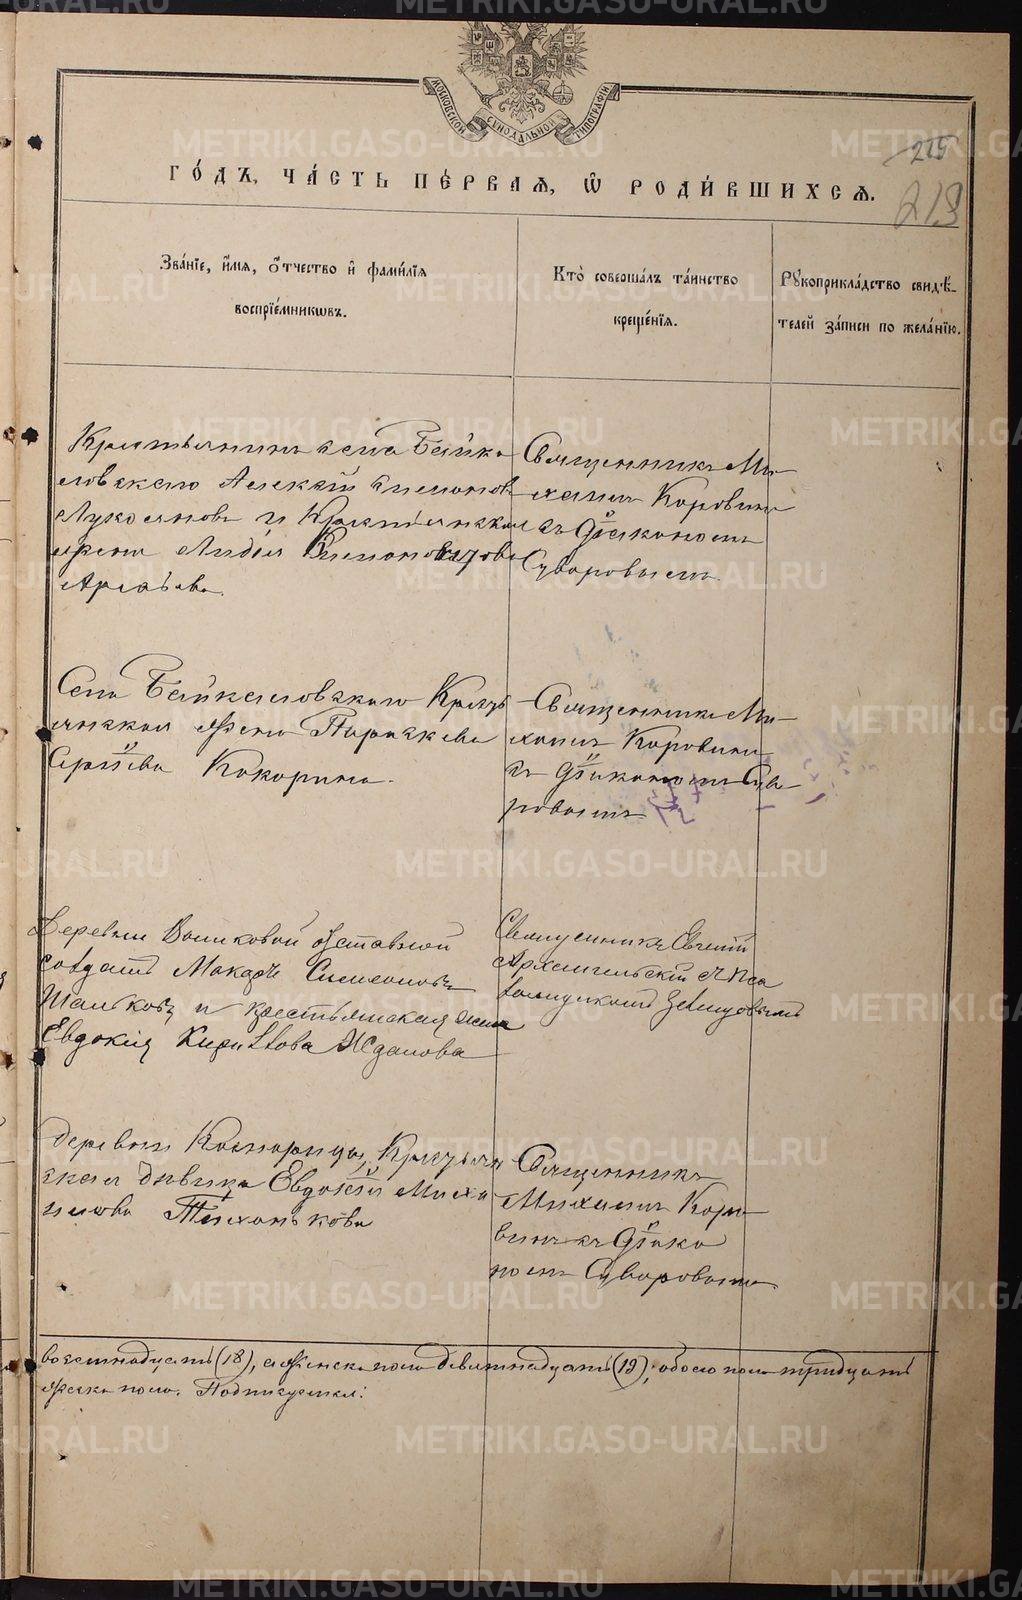 МОСКОВСКОЙ СѴНОДАЛЬНОЙ ТИПОГРАФІИ
215
213
ГО́ДЪ, ЧА́СТЬ ПЕ́РВАѦ, Ѡ҆ РОДИ́ВШИХСѦ.
Зва́нїе, и҆́мѧ, ѻ҆́тчество и҆ фами́лїѧ
воспрїе́мникѡвъ.
Кто̀ соверша́лъ та́инство
креще́нїѧ.
Рꙋкоприкла́дство свидѣ́-
телей за́писи по жела́нїю.
Крестьянинъ села Байка
ловскаго Алексѣй Симоновъ
Лукояновъ и Крестьянская
жена Лидія
Священникъ Ми
хаилъ Коровинъ
съ Діакономъ
Суворовымъ.
Села Байкаловскаго Кресть
янская жена Параскева
Сергіева Кокорина.
Священникъ Ми
хаилъ Коровинъ
съ Діакономъ Сув
ровымъ
Деревни Воинковой отставной
солдатъ Макаръ Симеоновъ
Шальковъ и крестьянская жена
Евдокія Кириллова Жданова
Священникъ Евгеній
Архангельскій съ Пса
ломщикомъ
Деревни Крестьян
ская дѣвица Евдокія Миха
илова Тиханькова
Священникъ
Михаилъ Коро
винъ съ Діако
номъ Суворовымъ
восемнадцать (18), а женска пола девятнадцать (19), обоего пола тридцать
женска пола. Подписуемся:
METRIKI.GASO-URAL.RU